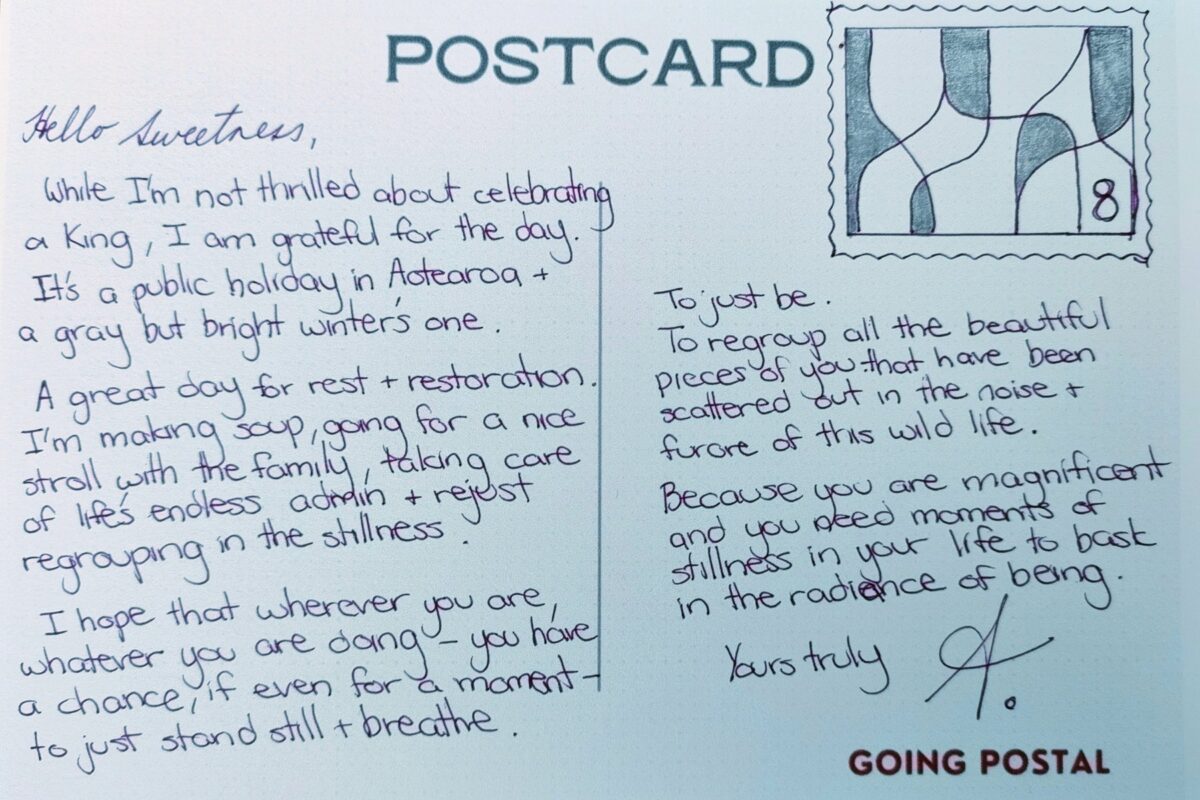 POSTCARD
8
Hello Sweetness,
While I'm not thrilled about celebrating
a King, I am grateful for the day.
It's a public holiday in Aotearoa +
a gray but bright winter's one.
A great day for rest + restoration.
I'm making soup, going for a nice
stroll with the family, taking care
of life's endless admin + rejust
regrouping in the stillness.
I hope that wherever you are,
whatever you are doing - you have
a chance, if even for a moment -
to just stand still + breathe.
To just be.
To regroup all the beautiful
pieces of you that have been
scattered out in the noise +
furore of this wild life.
Because you are magnificent
and you need moments of
stillness in your life to bask
in the radiance of being.
Yours truly
A.
GOING POSTAL